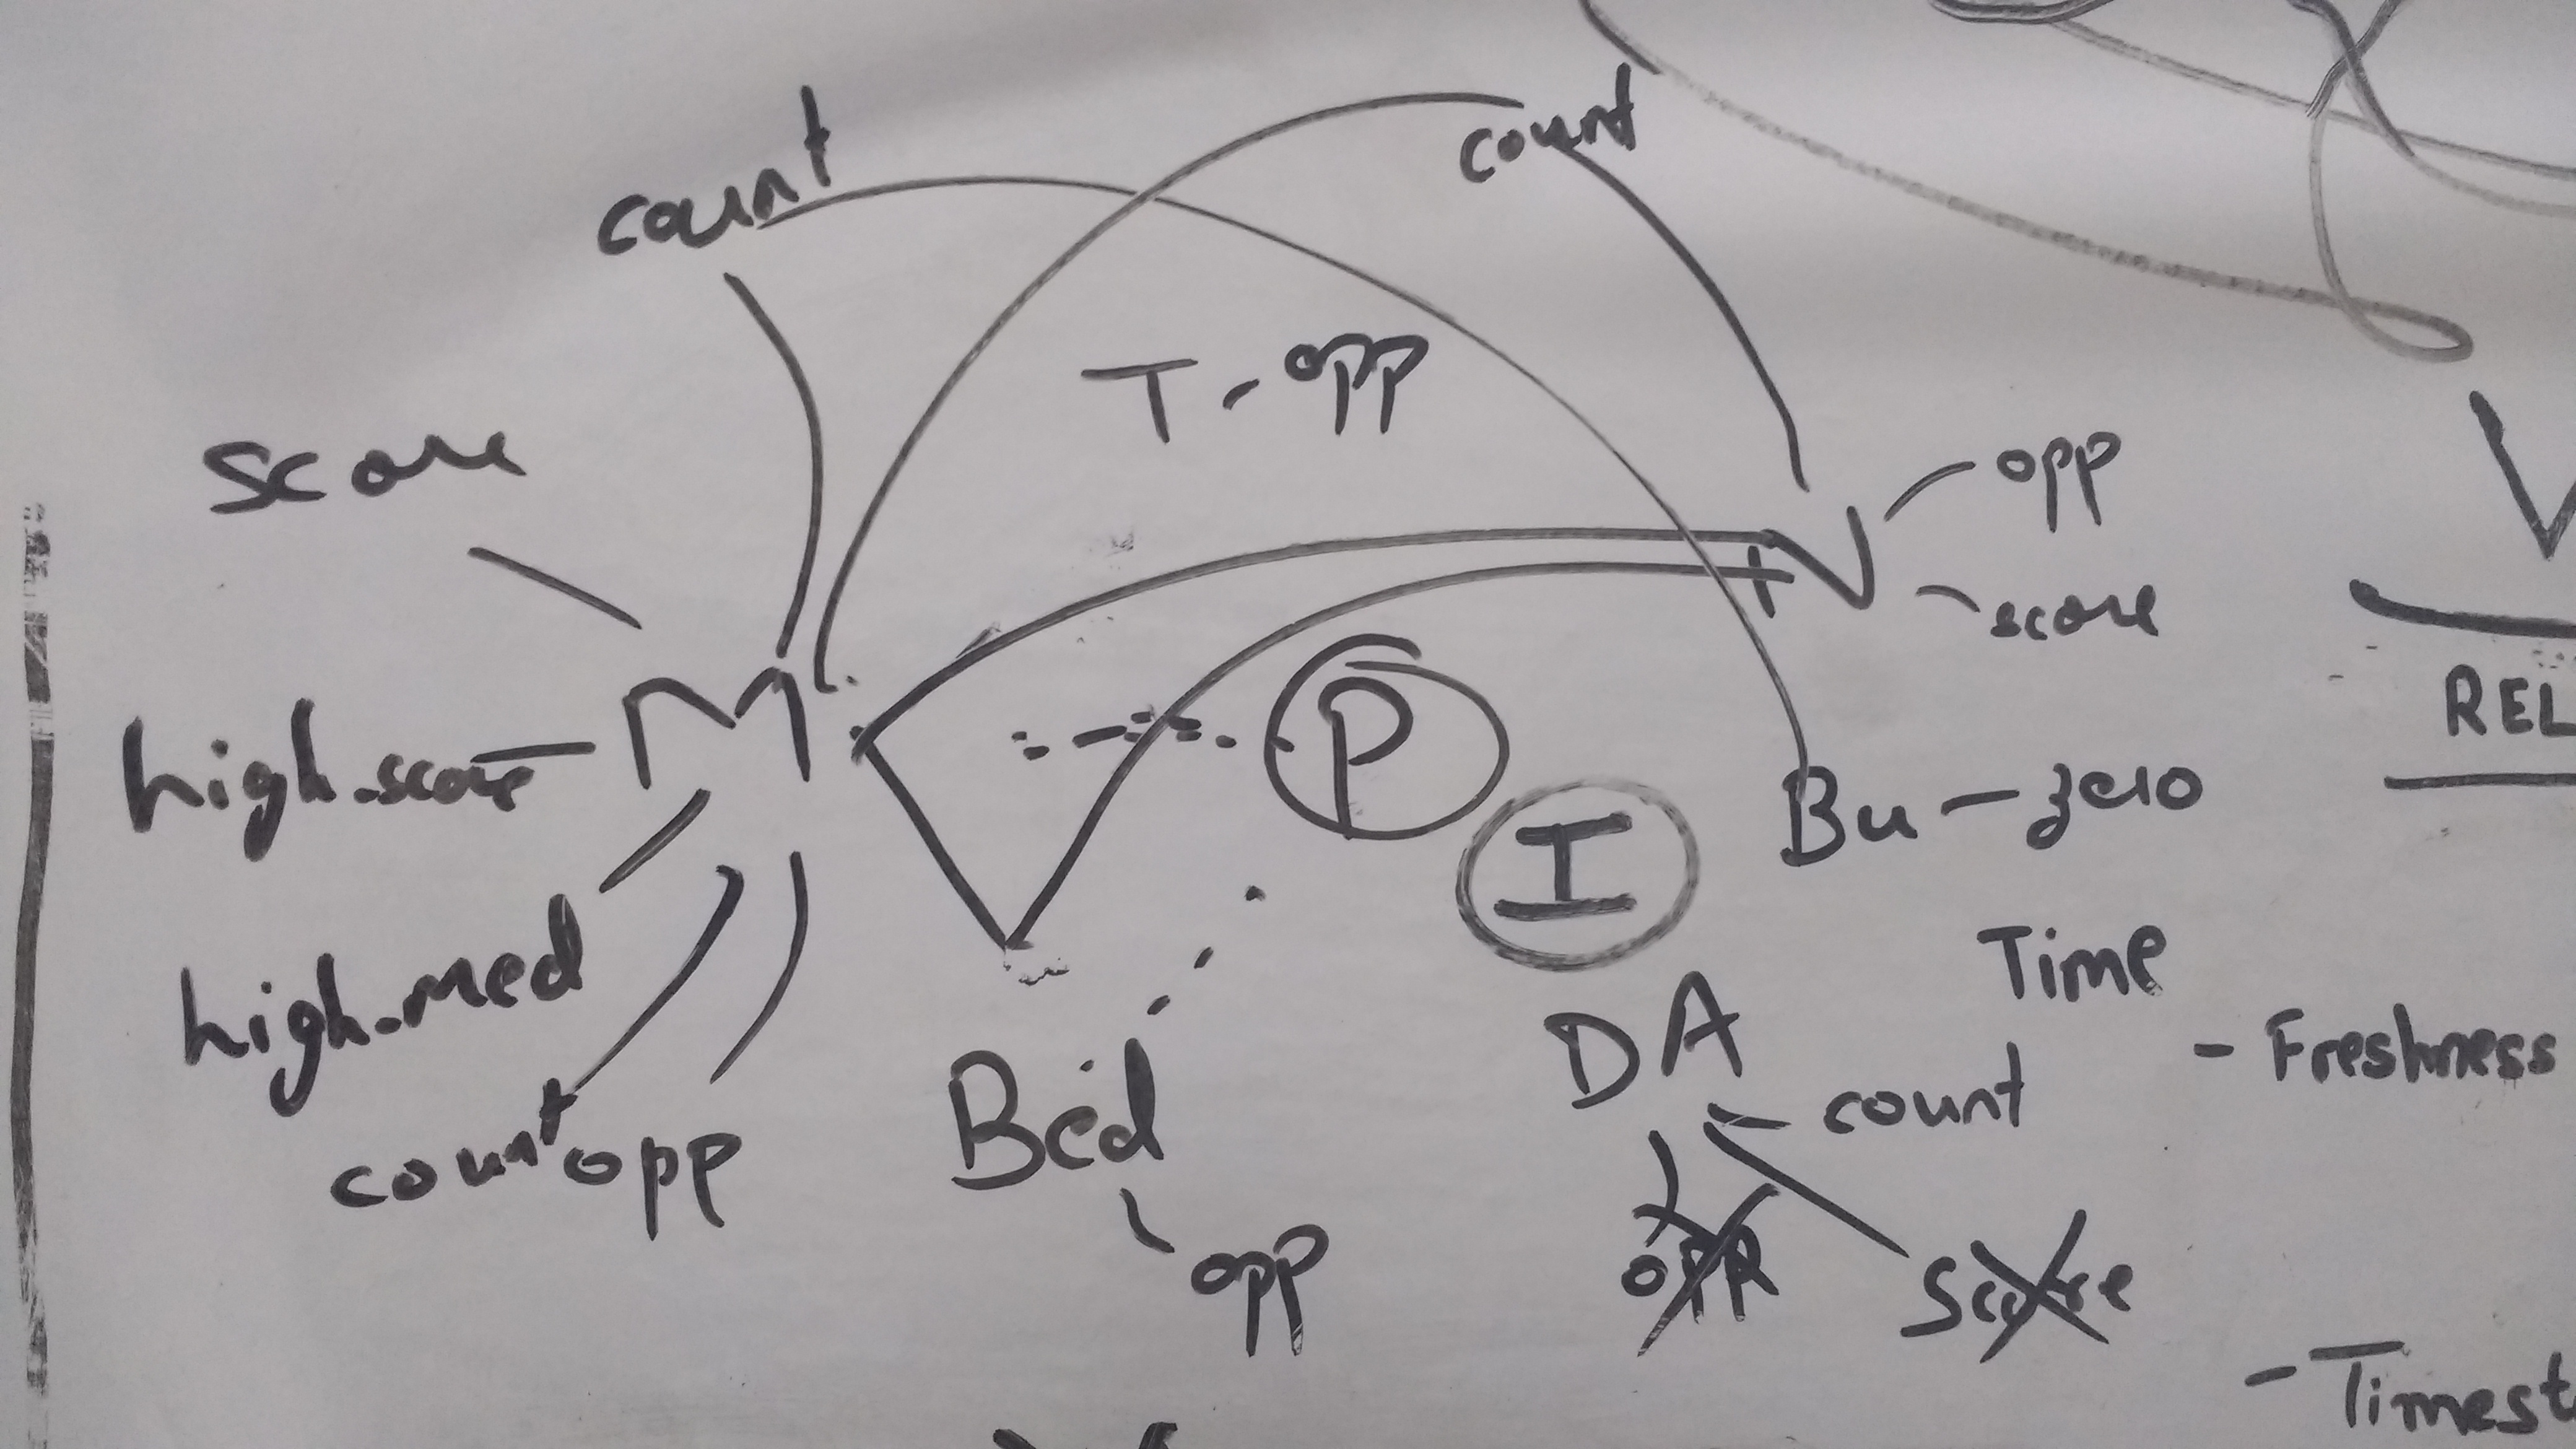 count
count
T-opp
score
opp
N
score
M
P
REL
high-score
I
Bu - zero
high-med
Time
DA
- Freshness
count
Bed
count
opp
opp
opp
Score
- Timest